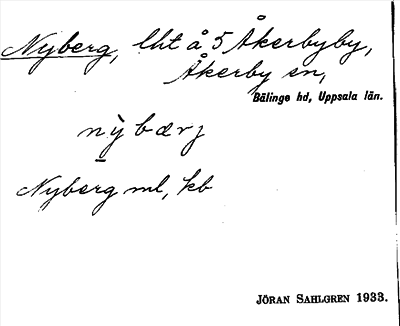 Nyberg, lht å 5 Åkerbyby,
Åkerby sn,
Bälinge hd, Uppsala län.
nỳbærj
Nyberg ml, kb
JÖRAN SAHLGREN 1933.